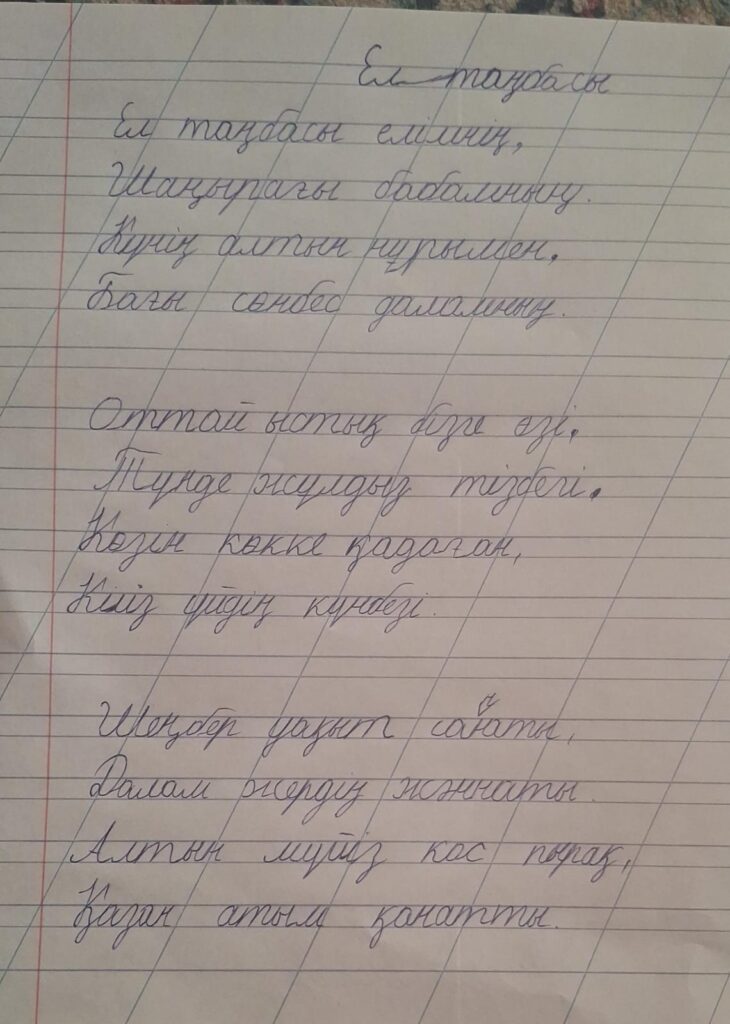 Ел таңбасы
Ел таңбасы елімнің,
Шаңырағы бабамның.
Күнің алтын нұрымен,
Бағы сөнбес даламның.
Оттай ыстық бізге өзі,
Түнде жұлдыз тізбегі.
Көзін көкке қадаған,
Кііз үйдің күнбезі.
Шеңбер уақыт сағаты,
Далам жердің жәннаты.
Алтын мүйіз кос пырақ,
Қазан атым қанатты.